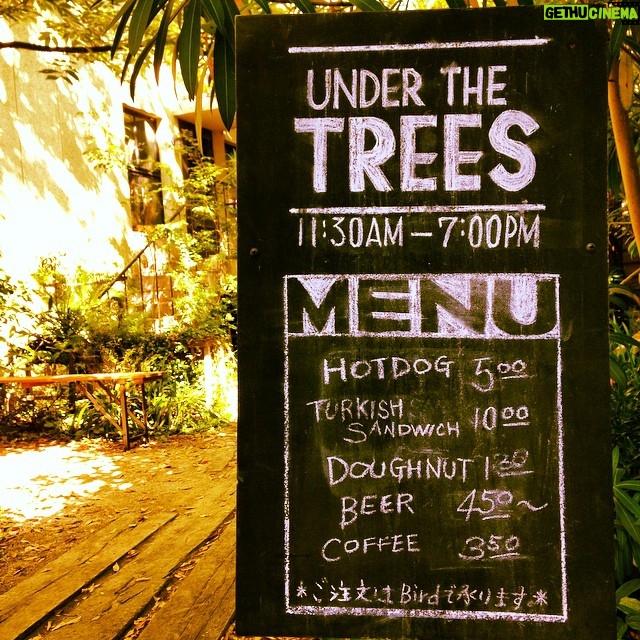 GETHUCINEMA
UNDER THE
TREES
11:30AM – 7:00PM
MENU
HOTDOG 5.00
TURKISH
SANDWICH 10.00
DOUGHNUT 1.30
BEER 4.50~
COFFEE 3.50
*ご注文はBirdで承ります*